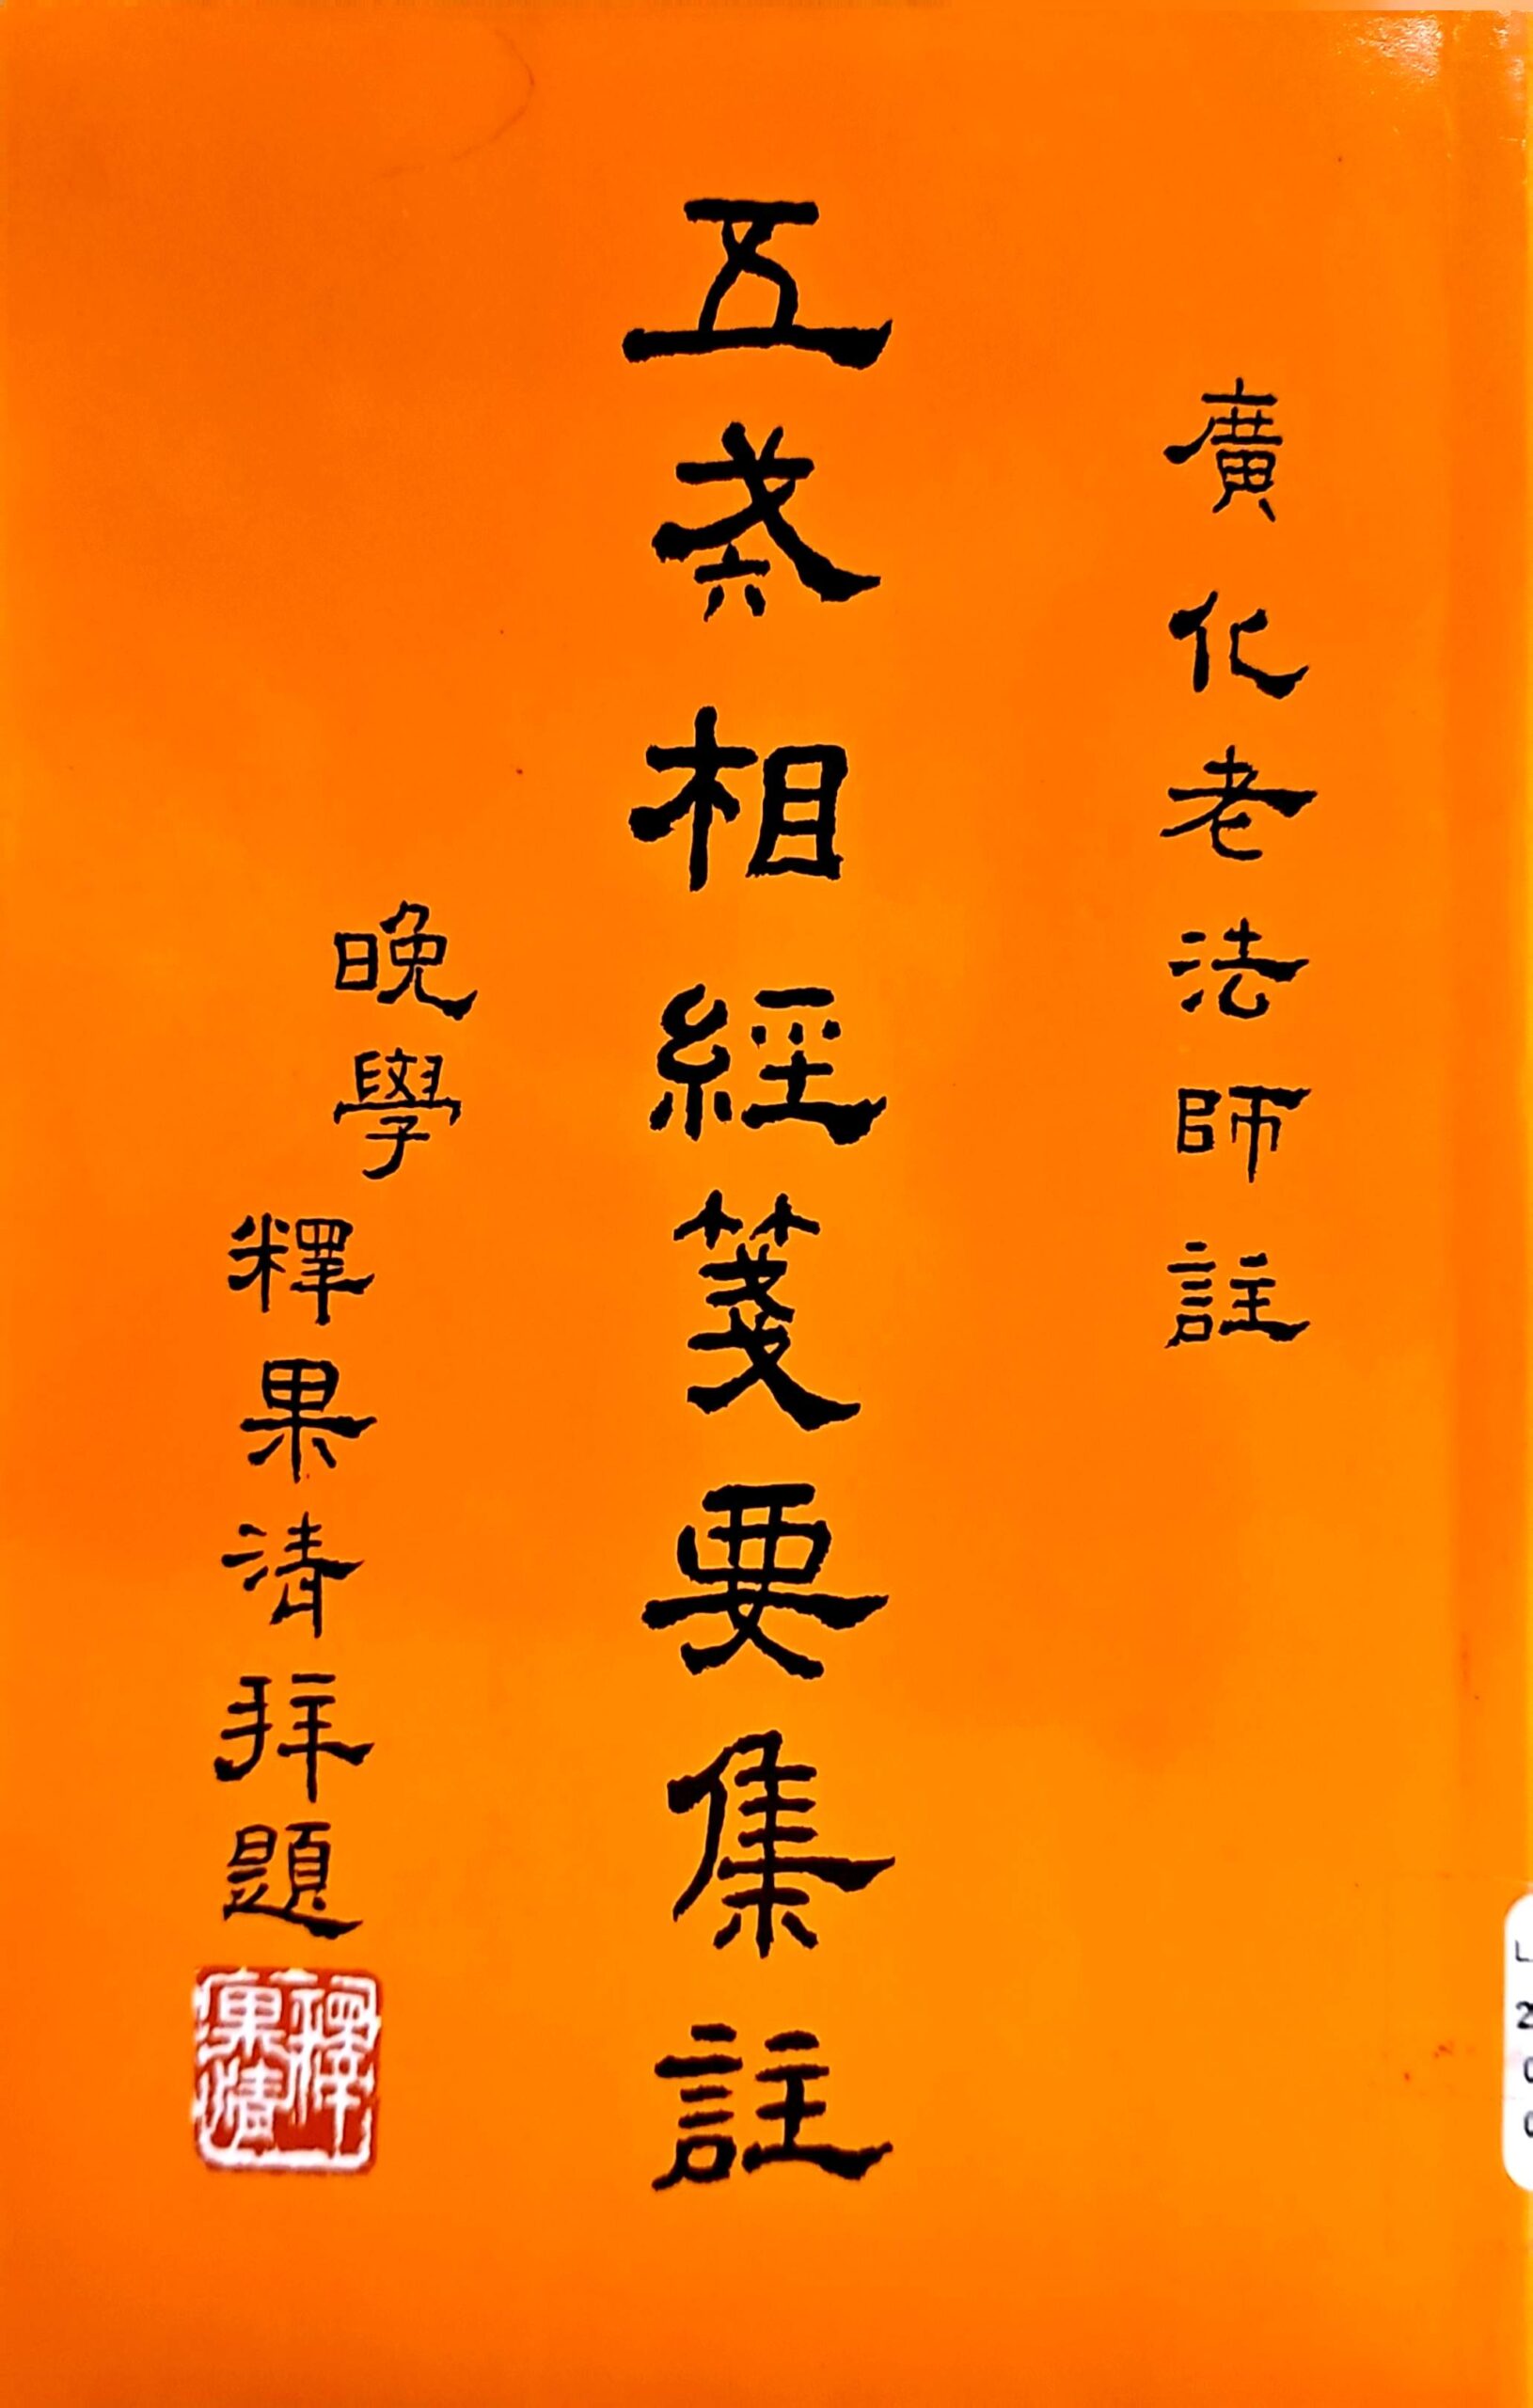 廣化老法師註
五戒相經箋要集註
晚學
釋果清拜題
釋果清